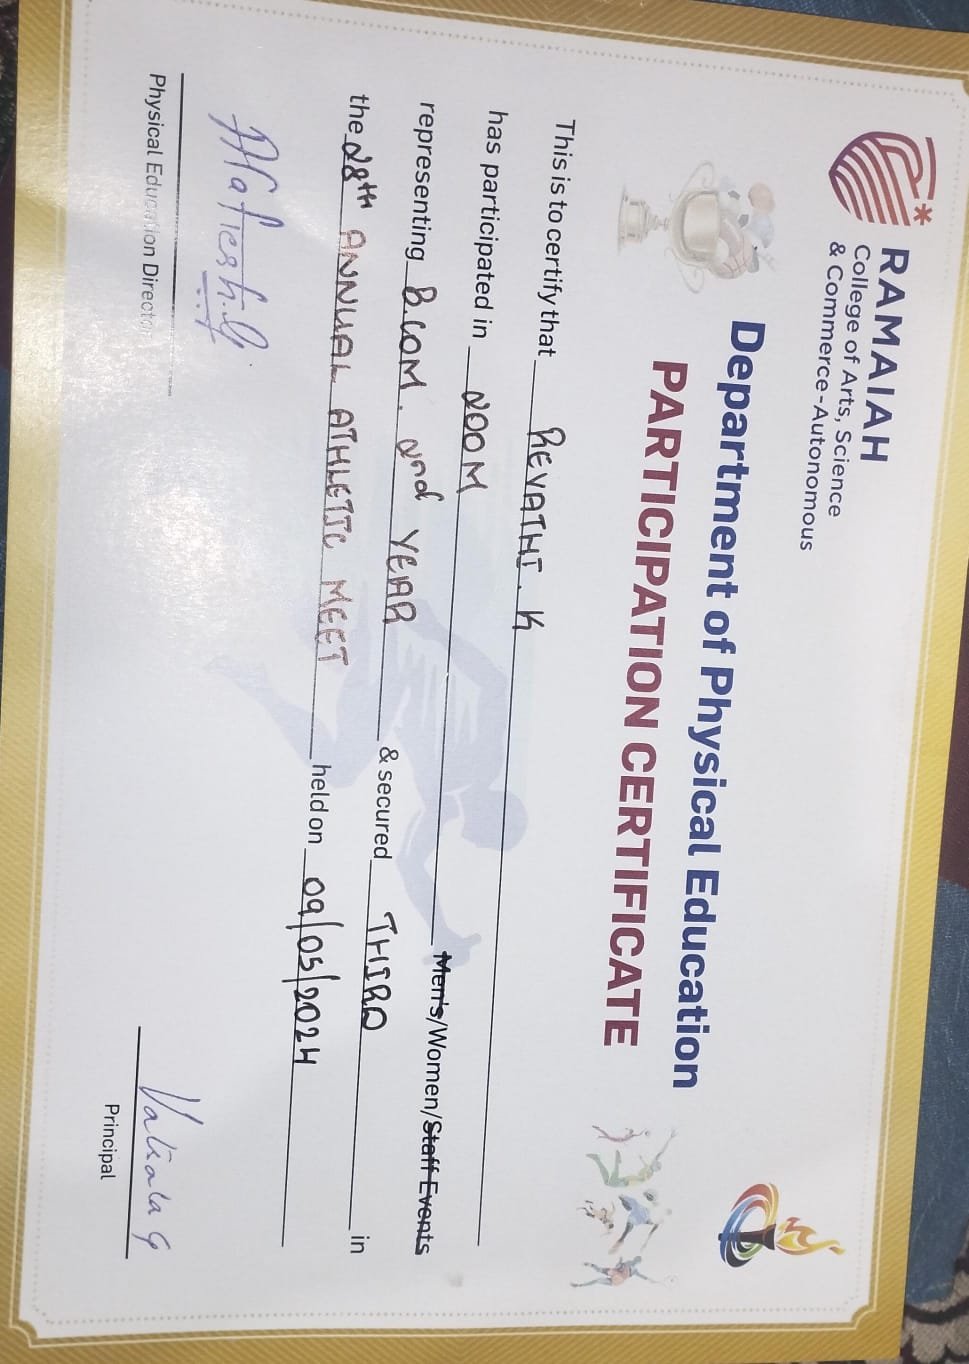 RAMAIAH
College of Arts, Science
& Commerce-Autonomous
Department of Physical Education
PARTICIPATION CERTIFICATE
This is to certify that REVATHI. K
has participated in 200M Men's/Women/Staff Events
representing B.COM. 2nd YEAR & secured THIRD in
the 28th ANNUAL ATHLETIC MEET held on 09/05/2024
Physical Education Director
Vatsala G
Principal